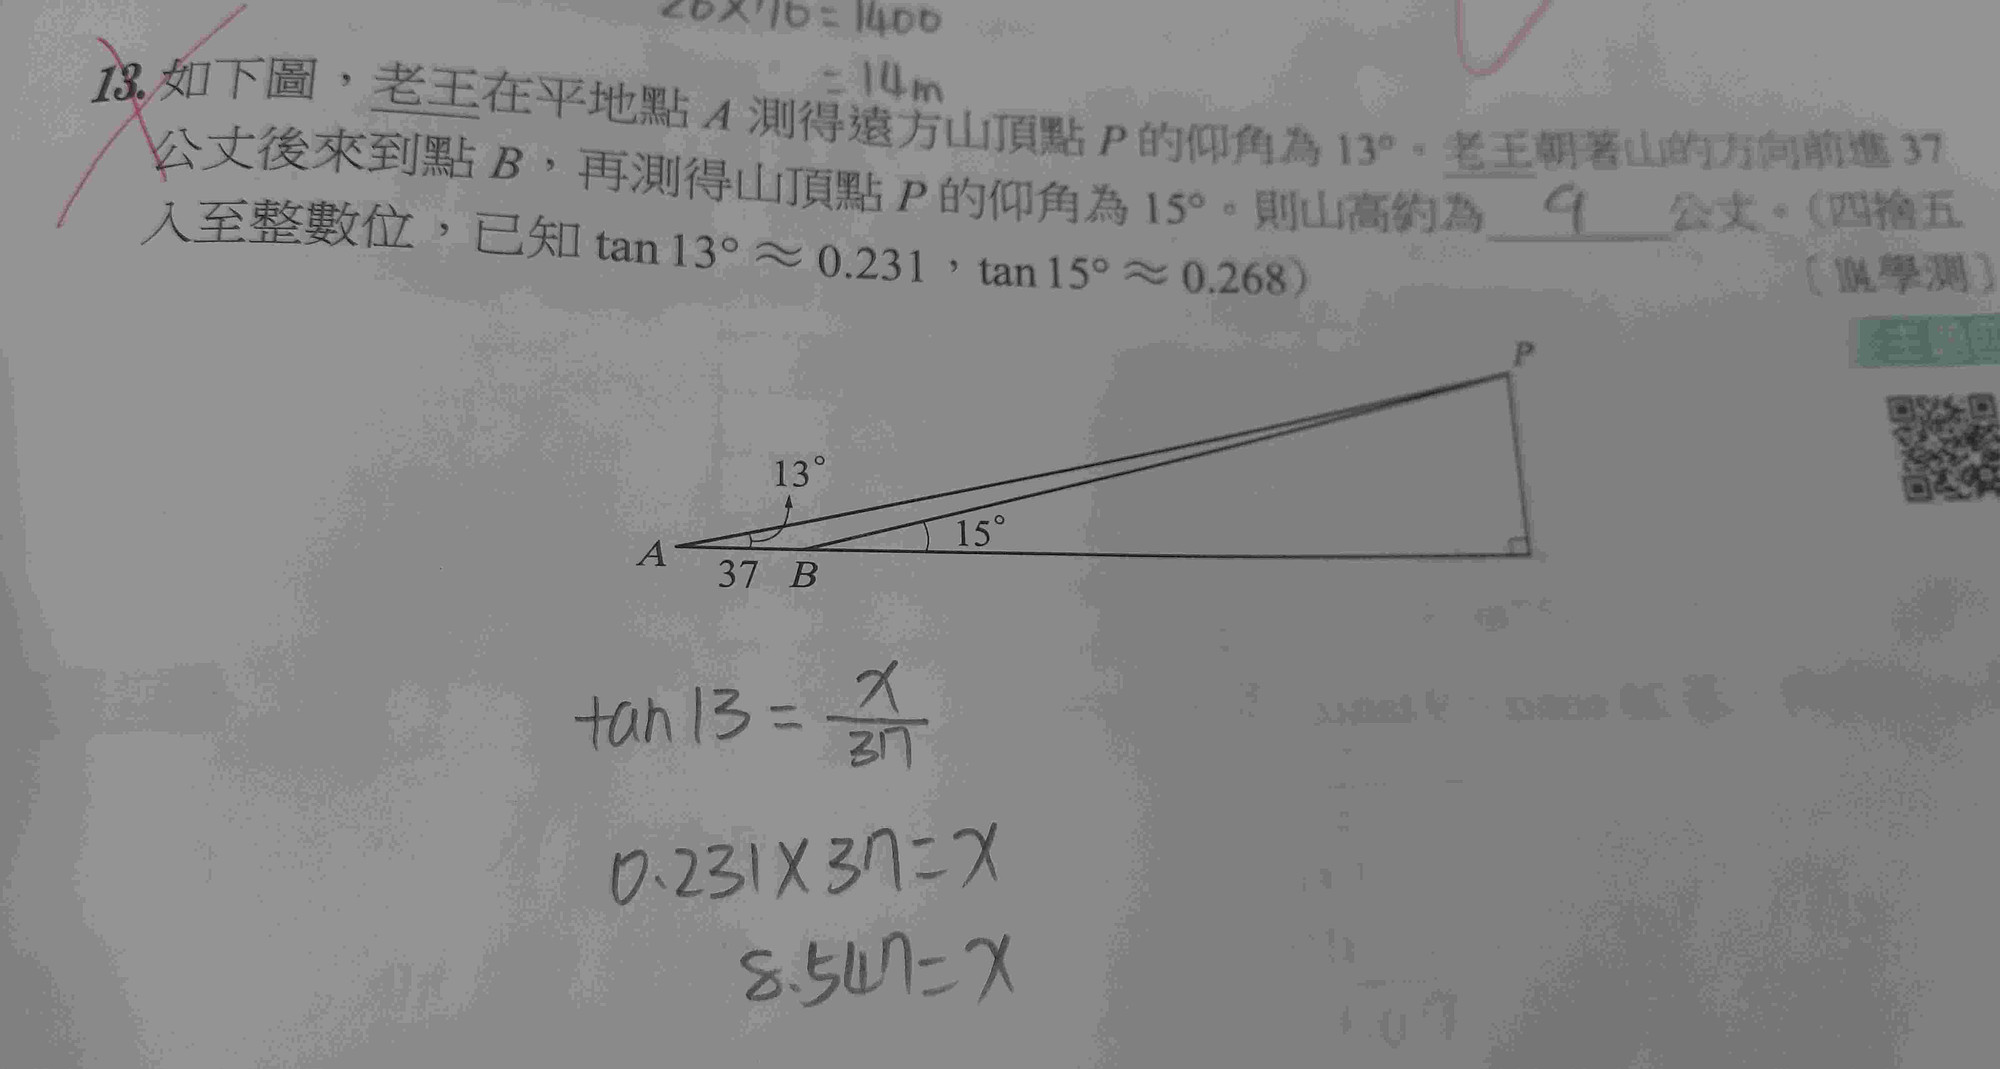 20×70=1400
=14m
13. 如下圖，老王在平地點 A 測得遠方山頂點 P 的仰角為 13°。老王朝著山的方向前進 37
公丈後來到點 B，再測得山頂點 P 的仰角為 15°。則山高約為 9 公丈。（四捨五
入至整數位，已知 tan 13° ≈ 0.231，tan 15° ≈ 0.268）
〔104.學測〕
P
13°
15°
A
37 B
tan 13 = x/37
0.231×37=x
8.547=x